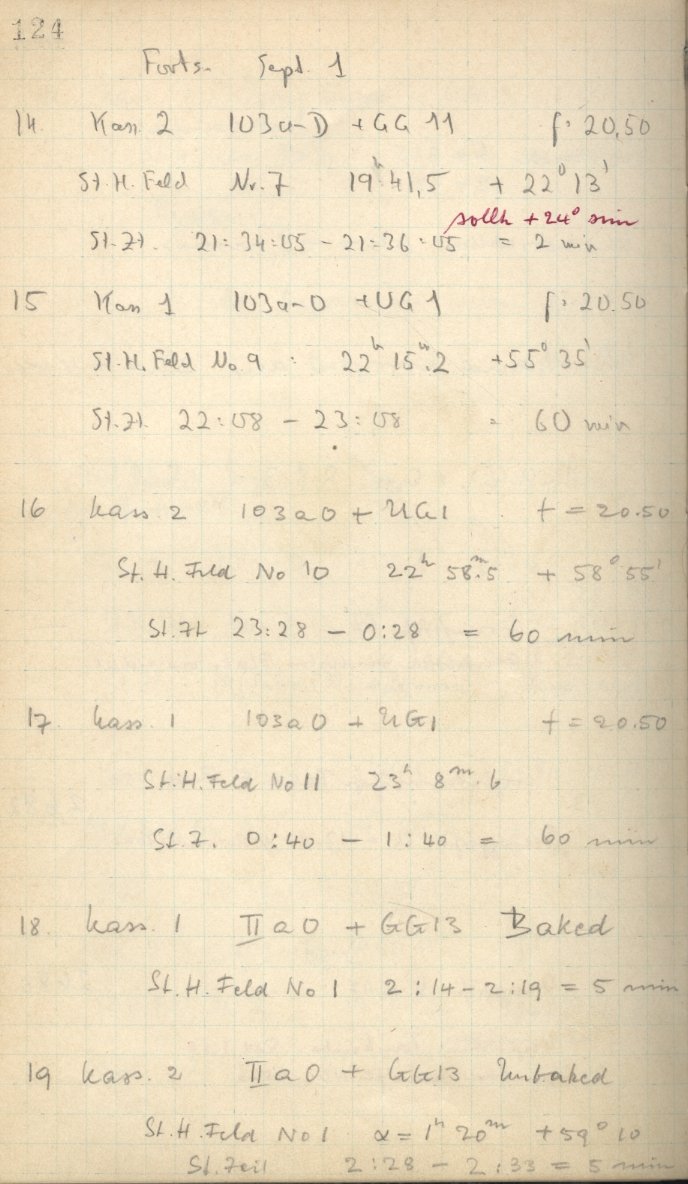 124
Forts. Sept. 1
14. Kass. 2 103a-D + GG 11 f: 20,50
St. H. Feld Nr. 7 19h 41,5 + 22° 13'
sollte +24° sein
St. Zt. 21:34:05 - 21:36:05 = 2 min
15 Kass 1 103a-O + UG 1 f: 20.50
St. H. Feld No 9 : 22h 15m.2 +55° 35'
St. Zt. 22:08 - 23:08 = 60 min
16 Kass 2 103a0 + UG1 f = 20.50
St. H. Feld No 10 22h 58m.5 + 58° 55'
St. Zt 23:28 - 0:28 = 60 min
17. Kass. 1 103a0 + UG1 f = 20.50
St. H. Feld No 11 23h 8m.6
St. Z. 0:40 - 1:40 = 60 min
18. Kass. 1 II a 0 + GG13 Baked
St. H. Feld No 1 2:14 - 2:19 = 5 min
19 Kass. 2 II a 0 + GG13 Unbaked
St. H. Feld No 1 α = 1h 20m +59° 10
St. Zeit 2:28 - 2:33 = 5 min